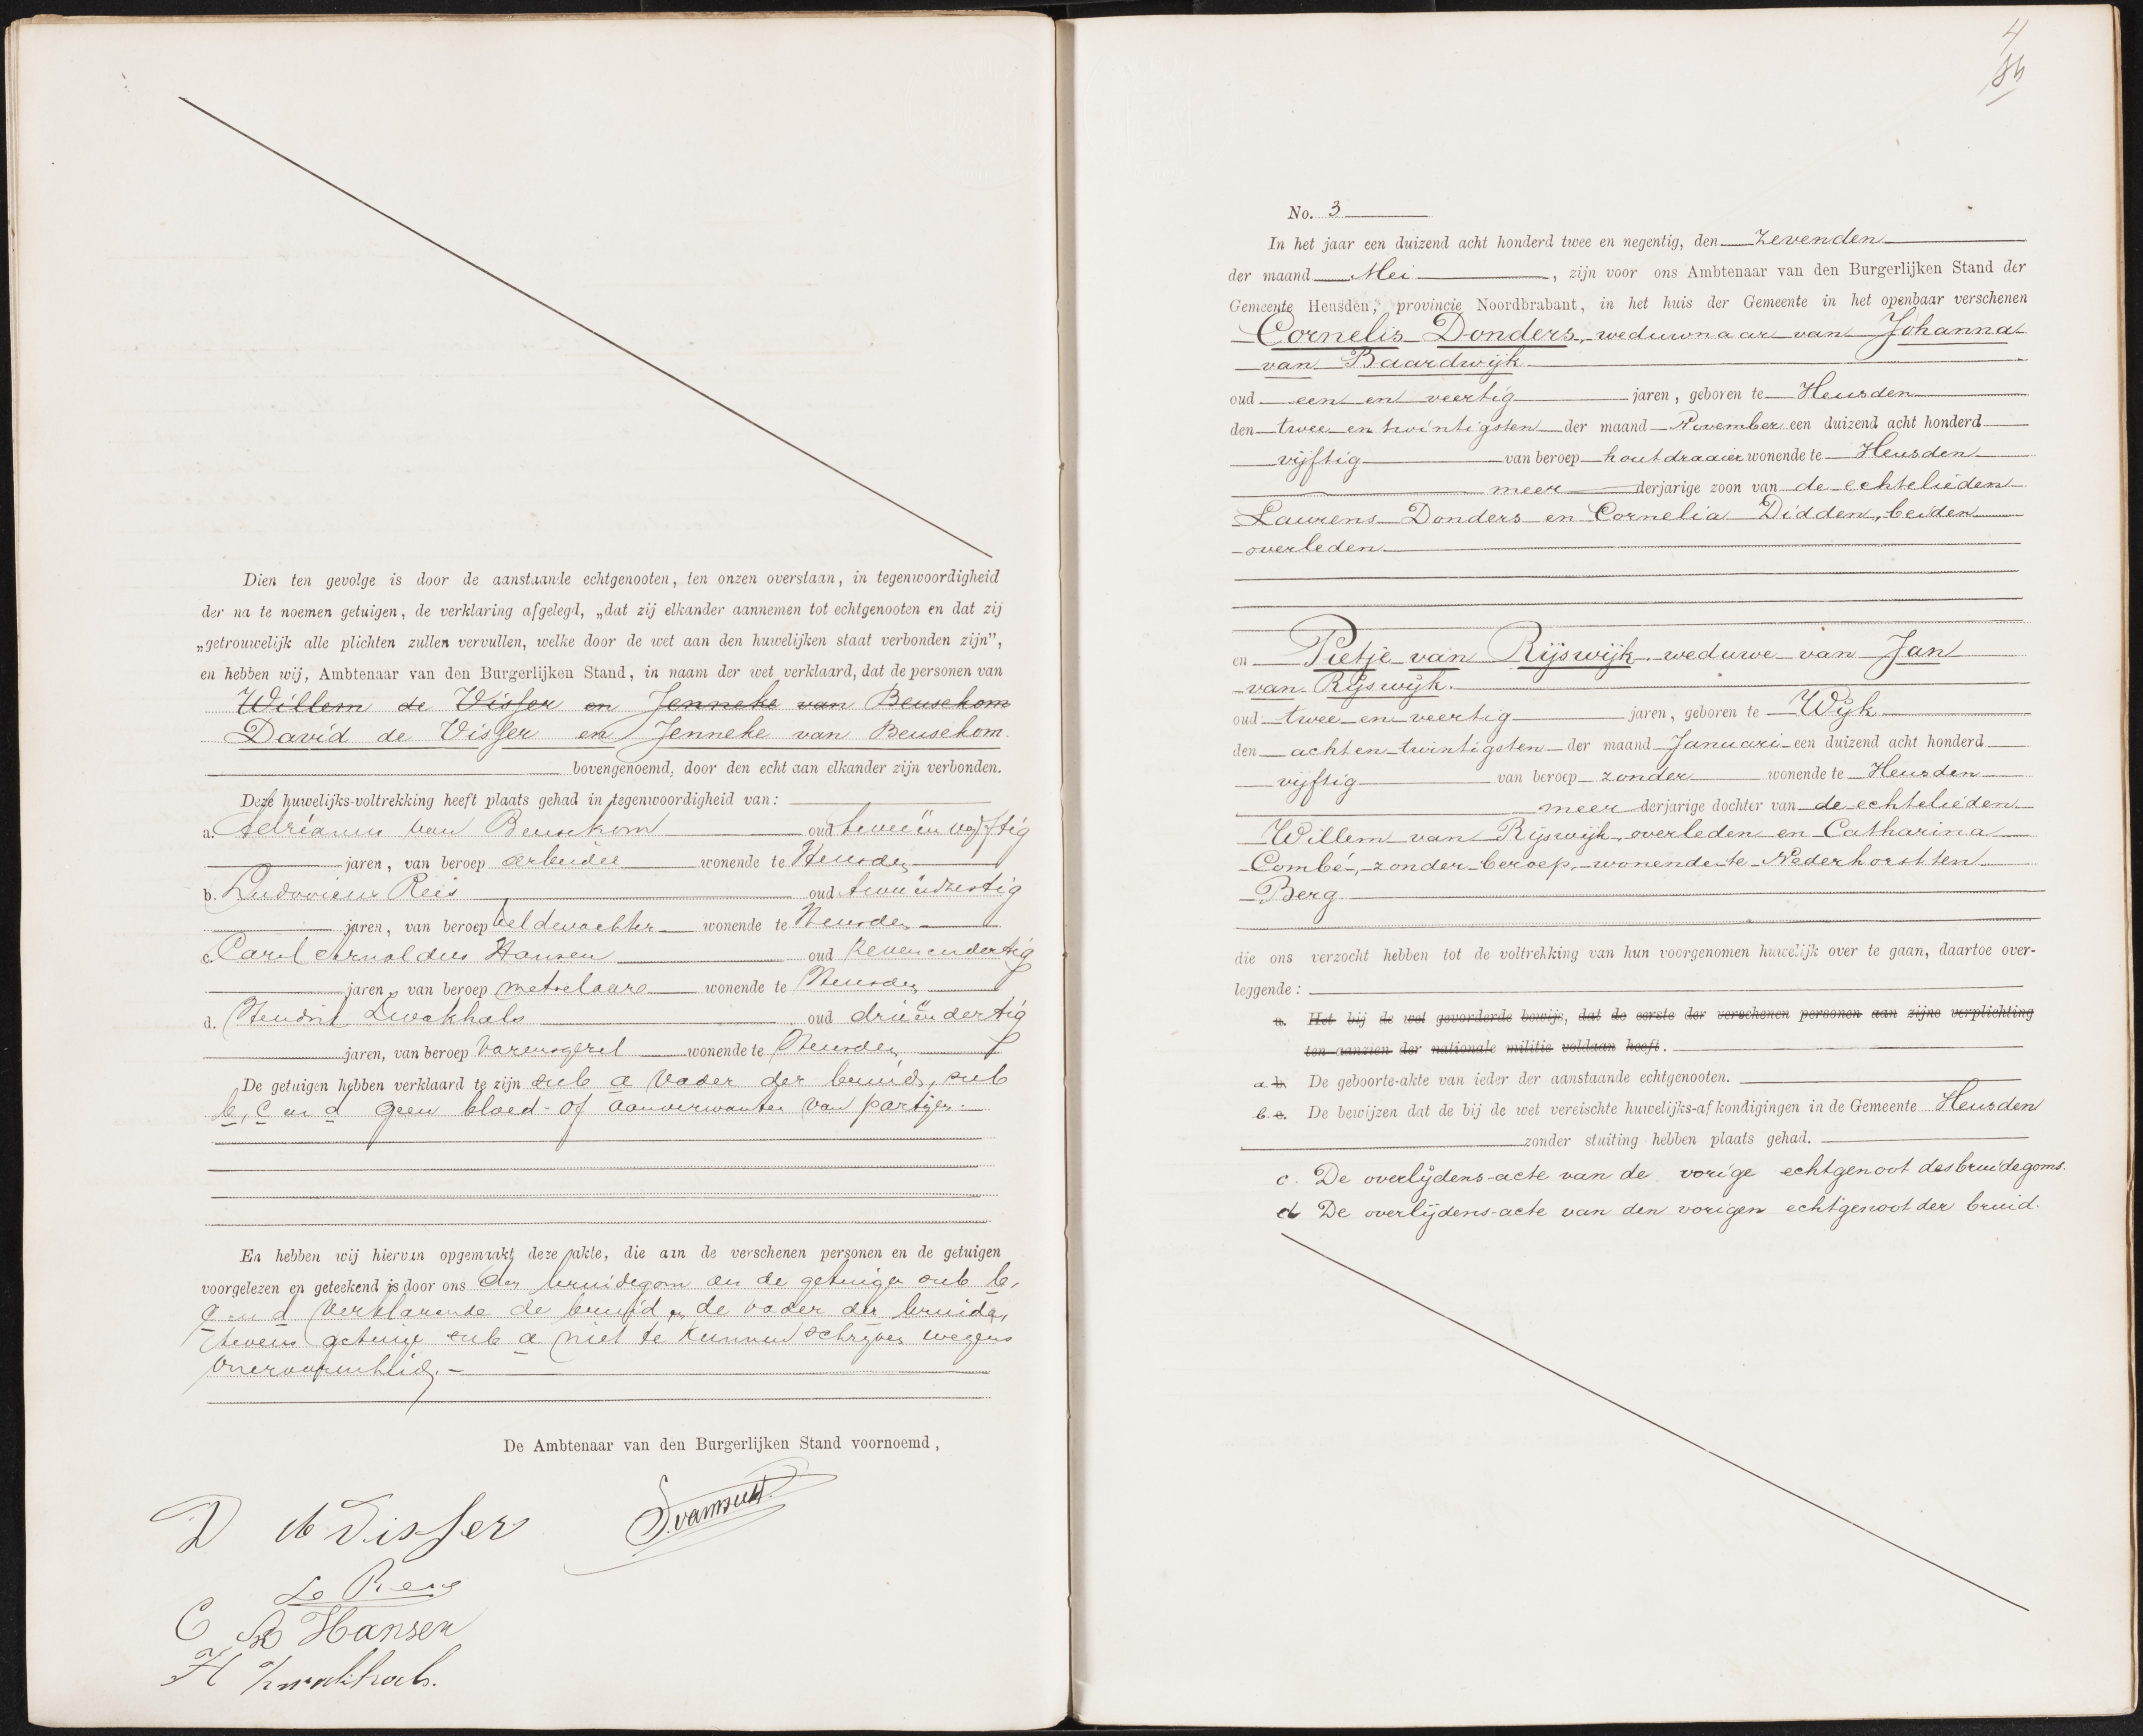 Dien ten gevolge is door de aanstaande echtgenooten, ten onzen overstaan, in tegenwoordigheid
der na te noemen getuigen, de verklaring afgelegd, „dat zij elkander aannemen tot echtgenooten en dat zij
„getrouwelijk alle plichten zullen vervullen, welke door de wet aan den huwelijken staat verbonden zijn”,
en hebben wij, Ambtenaar van den Burgerlijken Stand, in naam der wet verklaard, dat de personen van
Willem de Visser en Jenneke van Beusekom
David de Visser en Jenneke van Beusekom
bovengenoemd, door den echt aan elkander zijn verbonden.
Deze huwelijks-voltrekking heeft plaats gehad in tegenwoordigheid van:
a. Adrianus van Beusekom oud tweeënvijftig
jaren, van beroep arbeider wonende te Heusden
b. Ludovicus Reis oud tweeëndzestig
jaren, van beroep veldwachter wonende te Heusden
c. Carel Arnoldus Hansen oud zevenendertig
jaren, van beroep metselaar wonende te Heusden
d. Hendrik Zwakhals oud drieëndertig
jaren, van beroep varensgezel wonende te Heusden
De getuigen hebben verklaard te zijn sub a vader der bruid, sub
b, c en d geen bloed- of aanverwanten van partijen.
En hebben wij hiervan opgemaakt deze akte, die aan de verschenen personen en de getuigen
voorgelezen en geteekend is door ons den bruidegom en de getuigen sub b,
c en d verklarende de bruid en de vader der bruid,
tevens getuige sub a niet te kunnen schrijven wegens
onervarenheid.
De Ambtenaar van den Burgerlijken Stand voornoemd,
D de Visser
C A Hansen
H Zwakhals.
4
No. 3
In het jaar een duizend acht honderd twee en negentig, den zevenden
der maand Mei, zijn voor ons Ambtenaar van den Burgerlijken Stand der
Gemeente Heusden, provincie Noordbrabant, in het huis der Gemeente in het openbaar verschenen
Cornelis Donders, weduwnaar van Johanna
van Baardwijk
oud een en veertig jaren, geboren te Heusden
den twee en twintigsten der maand November een duizend acht honderd
vijftig van beroep houtdraaier wonende te Heusden
meer derjarige zoon van de echtelieden
Laurens Donders en Cornelia Didden, beiden
overleden
en Pietje van Rijswijk, weduwe van Jan
van Rijswijk.
oud twee en veertig jaren, geboren te Wijk
den achtentwintigsten der maand Januari een duizend acht honderd
vijftig van beroep zonder wonende te Heusden
meer derjarige dochter van de echtelieden
Willem van Rijswijk, overleden en Catharina
Combé, zonder beroep, wonende te Nederhorst ten
Berg
die ons verzocht hebben tot de voltrekking van hun voorgenomen huwelijk over te gaan, daartoe over-
leggende:
a. Het bij de wet gevorderde bewijs, dat de eerste der verschenen personen aan zijne verplichting
ten aanzien der nationale militie voldaan heeft.
a b. De geboorte-akte van ieder der aanstaande echtgenooten.
b. c. De bewijzen dat de bij de wet vereischte huwelijks-afkondigingen in de Gemeente Heusden
zonder stuiting hebben plaats gehad.
c. De overlijdens-acte van de vorige echtgenoot des bruidegoms.
d De overlijdens-acte van den vorigen echtgenoot der bruid.